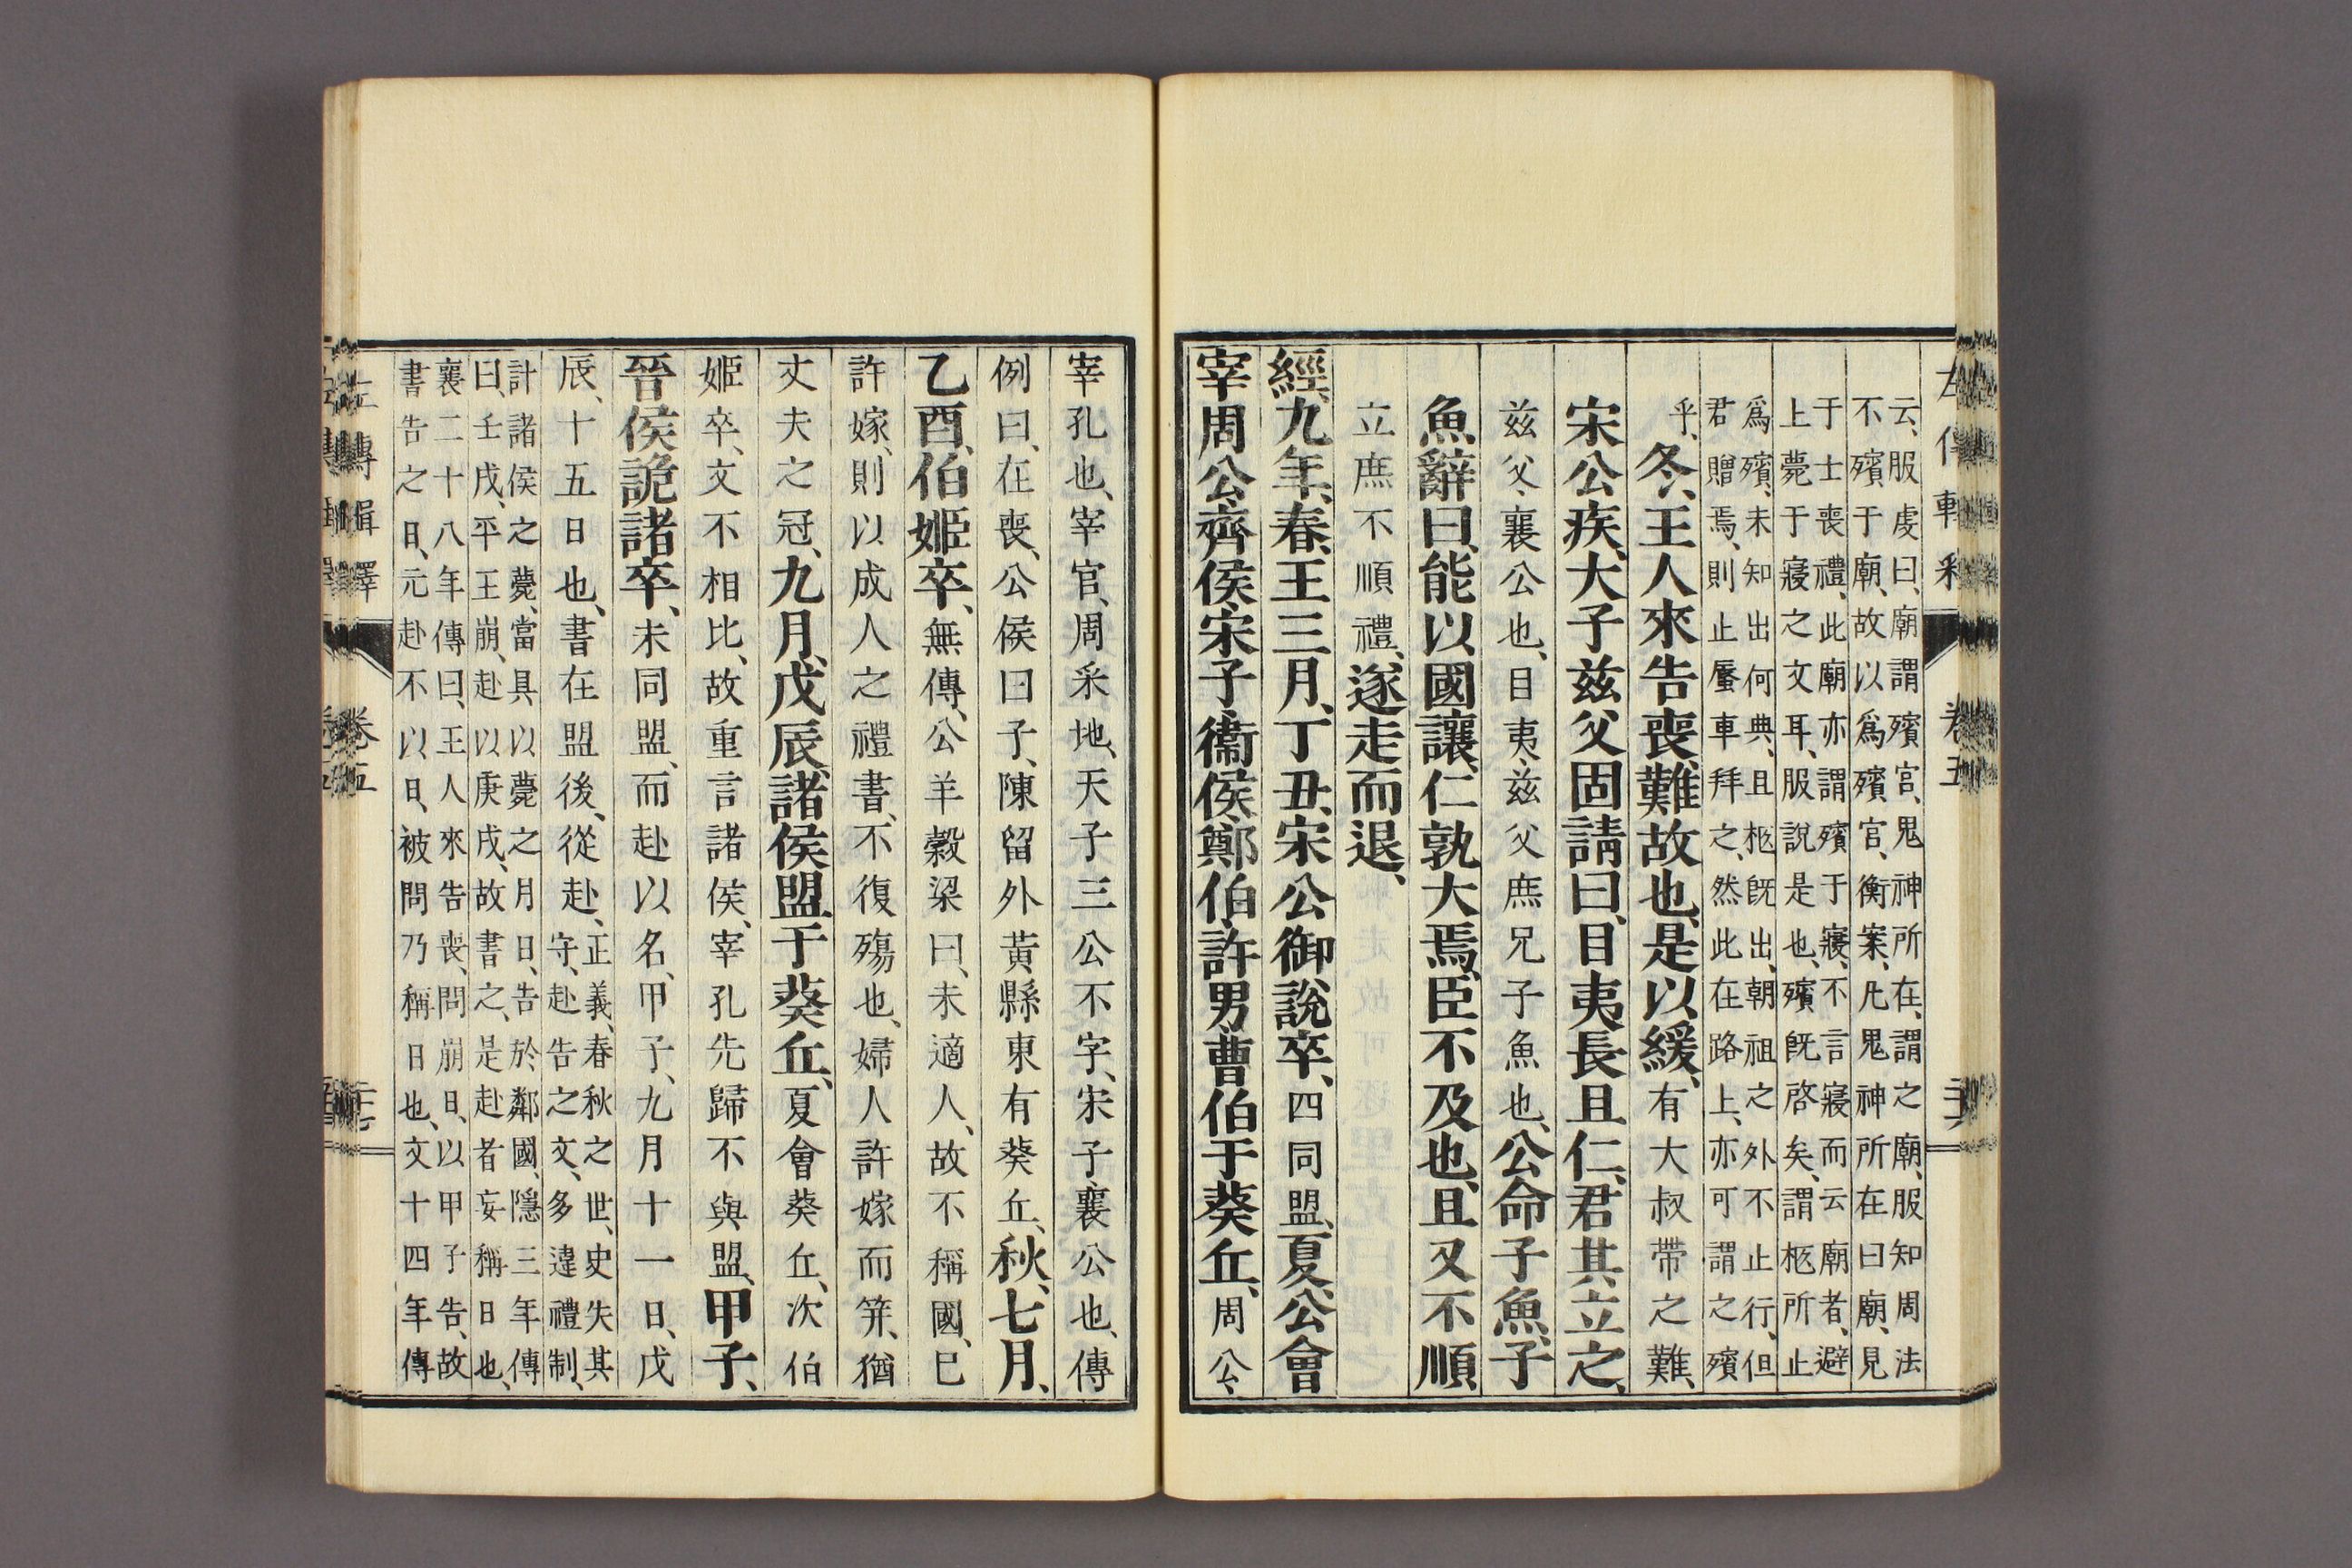 云、服虔曰、廟謂殯宮、鬼神所在、謂之廟、服知周法
不殯于廟、故以爲殯宮、衡案、凡鬼神所在曰廟、見
于士喪禮、此廟亦謂殯于寢、不言寢而云廟者、避
上薨于寢之文耳、服說是也、殯既啓矣、謂柩所止
爲殯、未知出何典、且柩既出、朝祖之外不止行、但
君贈焉、則止蜃車拜之、然此在路上、亦可謂之殯
乎、冬、王人來告喪、難故也、是以緩、有大叔帶之難、
宋公疾、大子茲父固請曰、目夷長且仁、君其立之、
茲父、襄公也、目夷、茲父庶兄子魚也、公命子魚、子
魚辭曰、能以國讓、仁孰大焉、臣不及也、且又不順、
立庶不順禮、遂走而退、
經、九年、春、王三月、丁丑、宋公御說卒、四同盟、夏、公會
宰周公、齊侯、宋子、衞侯、鄭伯、許男、曹伯于葵丘、周公、
宰孔也、宰官、周采地、天子三公不字、宋子、襄公也、傳
例曰、在喪、公侯曰子、陳留外黃縣東有葵丘、秋、七月、
乙酉、伯姬卒、無傳、公羊穀梁曰、未適人、故不稱國、已
許嫁、則以成人之禮書、不復殤也、婦人許嫁而筓、猶
丈夫之冠、九月、戊辰、諸侯盟于葵丘、夏會葵丘、次伯
姬卒、文不相比、故重言諸侯、宰孔先歸不與盟、甲子、
晉侯詭諸卒、未同盟、而赴以名、甲子、九月十一日、戊
辰、十五日也、書在盟後、從赴、正義、春秋之世、史失其
守、赴告之文、多違禮制、
計諸侯之薨、當具以薨之月日、告於鄰國、隱三年傳
曰、壬戌、平王崩、赴以庚戌、故書之、是赴者妄稱日也、
襄二十八年傳曰、王人來告喪、問崩日、以甲子告、故
書告之日、元赴不以日、被問乃稱日也、文十四年傳
左傳輯釋
卷五